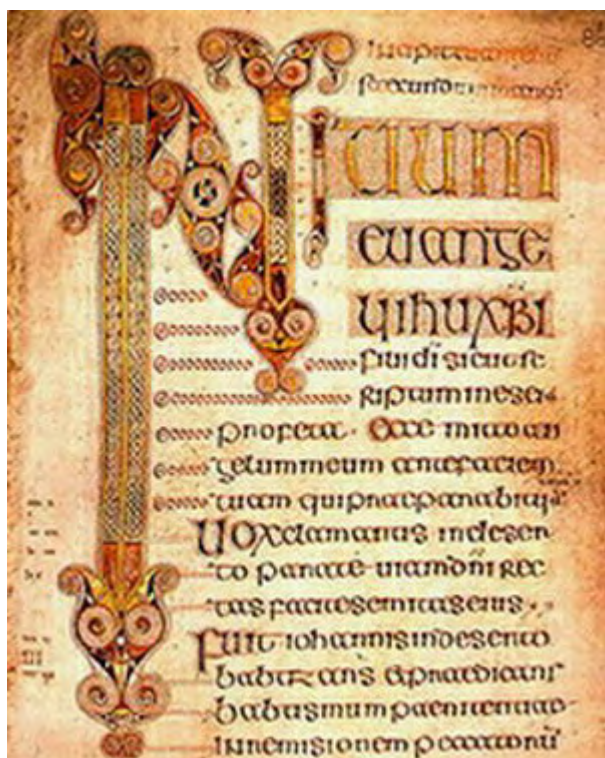 INITIUM
EUANGE
LII IHU XPI
filii di sicut sc
riptum in eseia
profeta · Ecce mitto an
gelum meum ante faciem
tuam qui praeparabit uia
Uox clamantis in deser
to parate uiam dni rec
tas facite semitas eius
Fuit iohannis in deserto
babtizans & praedicans
babtismum paenitentiae
in remisionem peccatorum